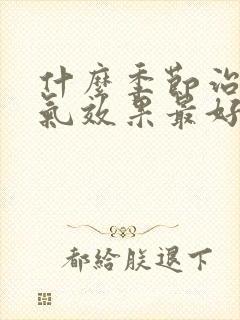 什麼季節治
氣效果最好
都給朕退下